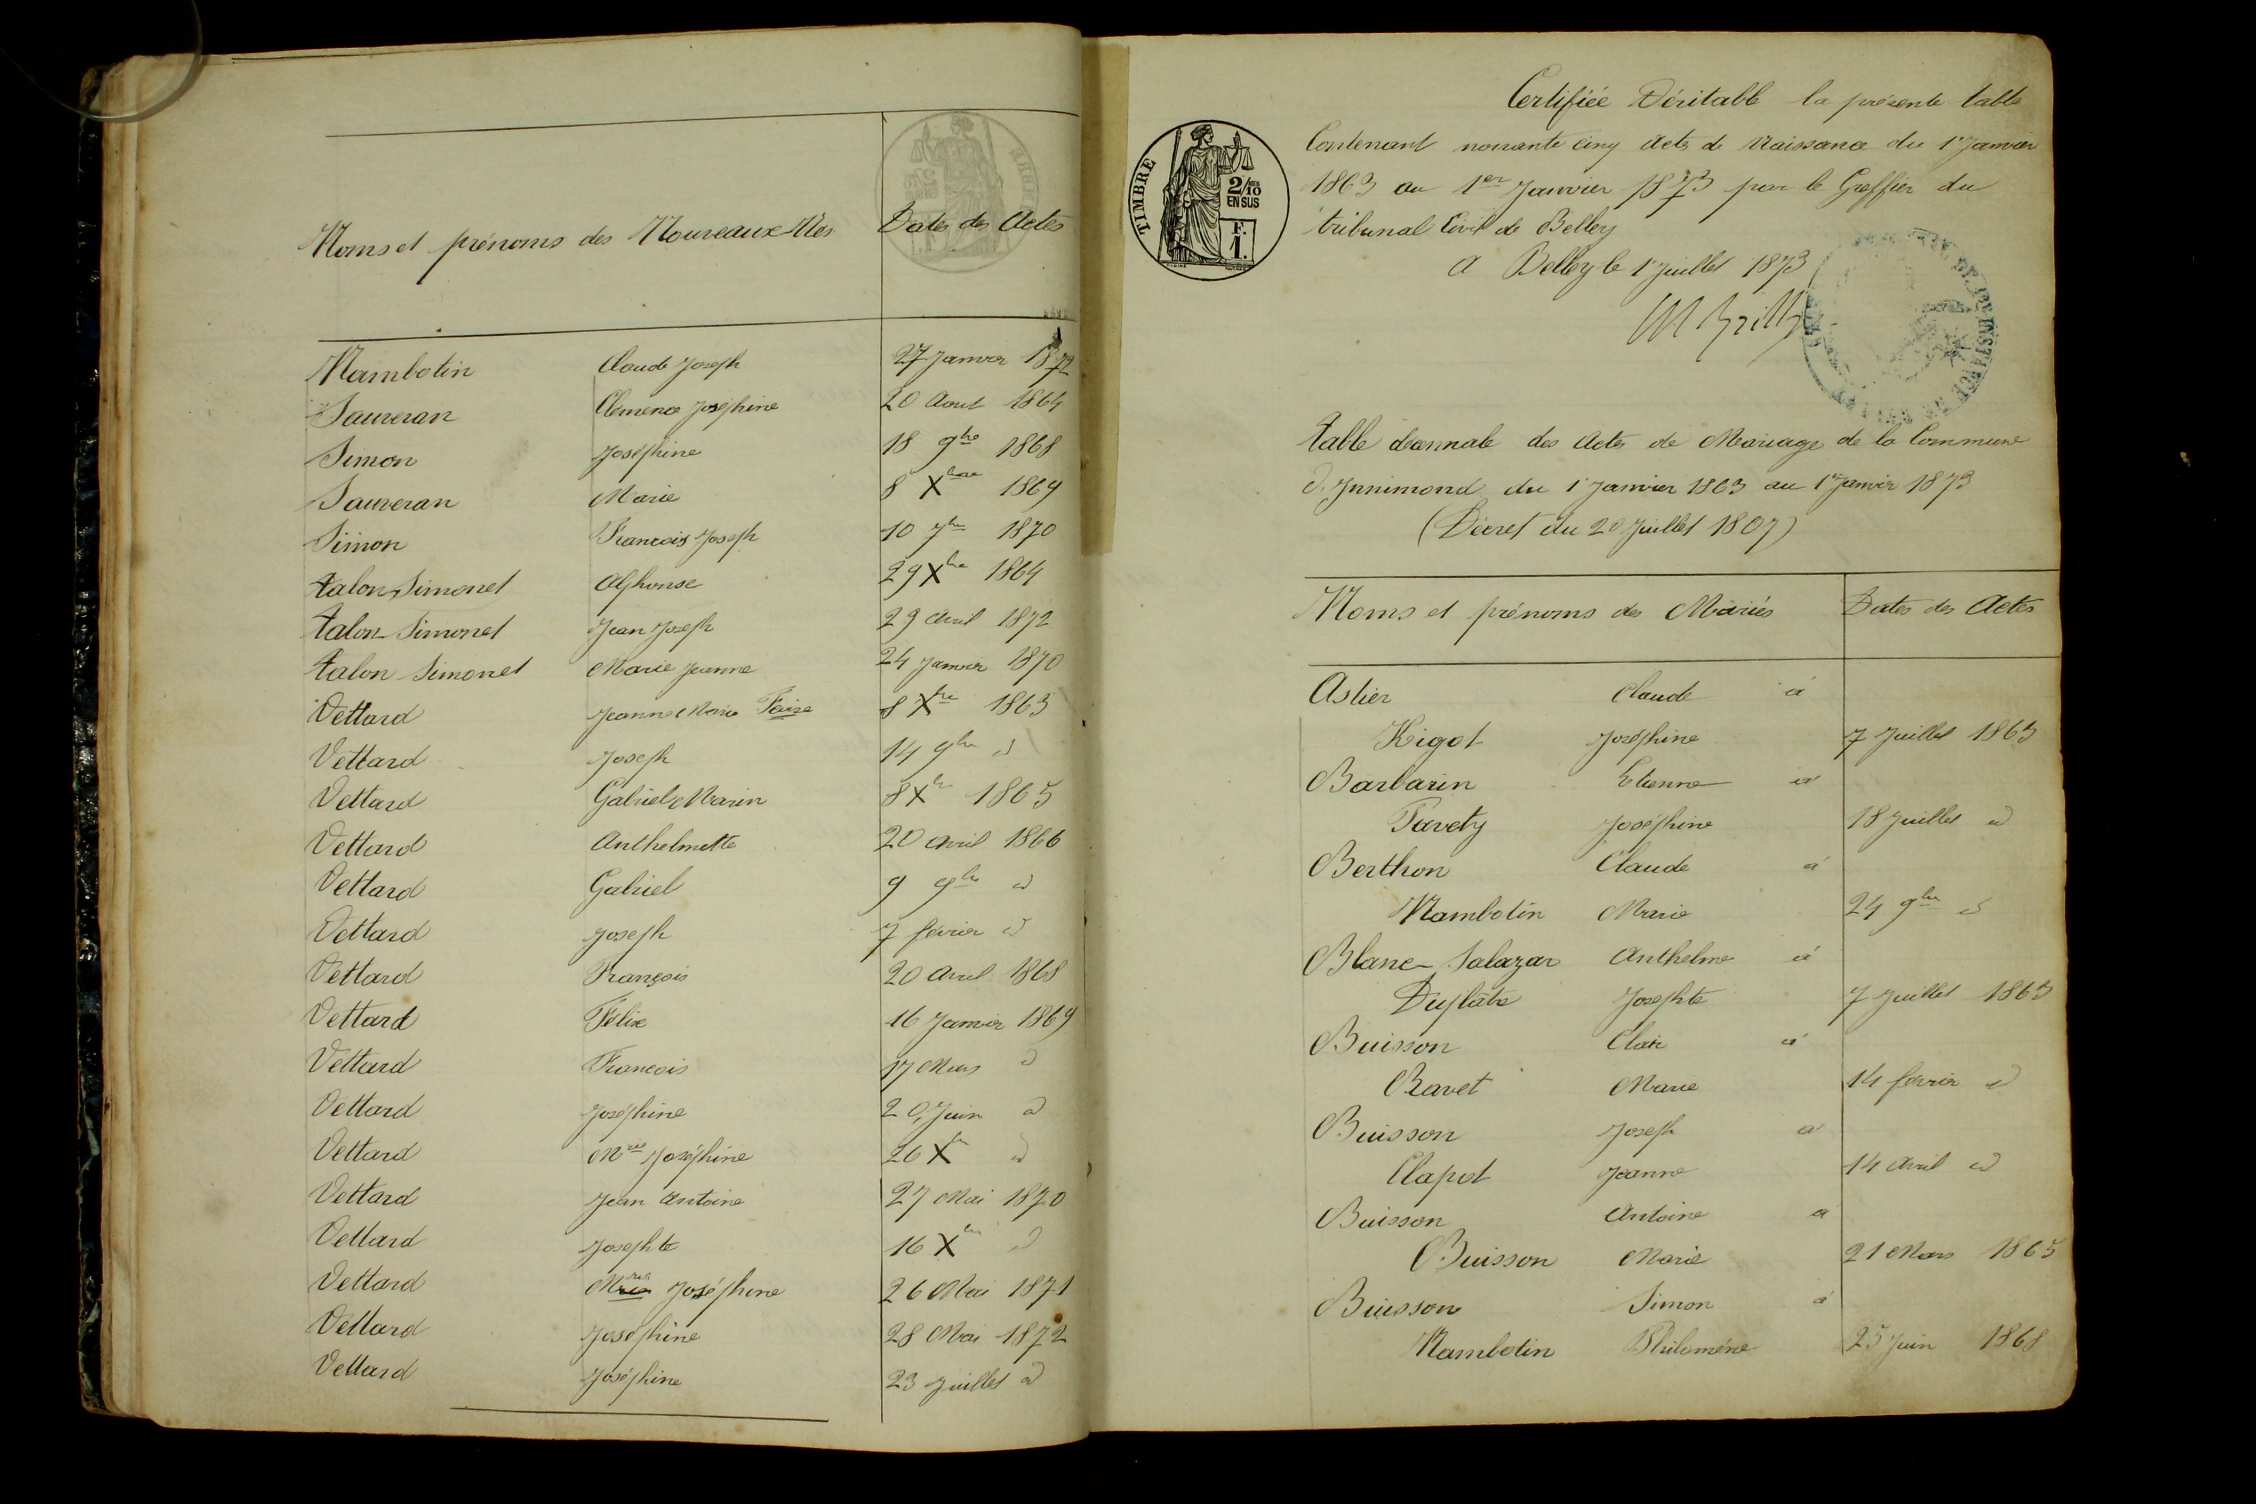 Noms et prénoms des Nouveaux Nés Dates des Actes
Mambotin Claude Joseph 27 Janvier 1872
Sauveran Clémence Joséphine 20 Aout 1864
Simon Joséphine 18 9bre 1868
Sauveran Marie 8 Xbre 1869
Simon François Joseph 10 7bre 1870
talon Simonet Alphonse 29 Xbre 1864
talon Simonet Jean Joseph 29 avril 1872
talon Simonet Marie Jeanne 24 Janvier 1870
Vettard Jeanne Marie 8 Xbre 1863
Vettard Joseph 14 9bre d
Vettard Gabriel Marin 8 Xbre 1865
Vettard Anthelmette 20 avril 1866
Vettard Gabriel 9 9bre d
Vettard Joseph 7 février d
Vettard François 20 avril 1868
Vettard Félix 16 Janvier 1869
Vettard François 17 Mars d
Vettard Joséphine 20 Juin d
Vettard Mrie Joséphine 26 Xbre d
Vettard Jean Antoine 27 Mai 1870
Vettard Josephte 16 Xbre d
Vettard Mrie Joséphine 26 Mai 1871
Vettard Joséphine 28 Mai 1872
Vettard Joséphine 23 Juillet d
TIMBRE
2/10
EN SUS
F.
1.
Certifiée Véritable la présente table
Contenant nonante cinq acte de Naissance du 1er Janvier
1863 au 1er Janvier 1873 par le Greffier du
tribunal Civil de Belley
A Belley le 1er Juillet 1873
table décennale des Actes de Mariage de la Commune
d'Innimond du 1er Janvier 1863 au 1er Janvier 1873
(Décret du 20 Juillet 1807)
Noms et prénoms des Mariés Dates des Actes
Astier Claude à
Rigot Joséphine 7 Juillet 1863
Barbarin Etienne à
Favety Joséphine 18 Juillet d
Berthon Claude à
Mambotin Marie 24 9bre d
Blanc-Salazar Anthelme à
Duplâtre Josephte 7 Juillet 1863
Buisson Clair à
Ravet Marie 14 février d
Buisson Joseph à
Clapot Jeanne 14 avril d
Buisson Antoine à
Buisson Marie 21 Mars 1865
Buisson Simon à
Mambotin Philomène 25 Juin 1868